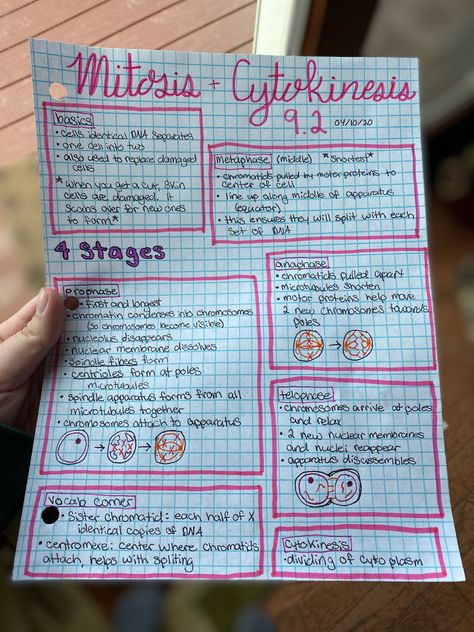 Mitosis + Cytokinesis
9.2 04/10/20
basics
• cells identical DNA separates
• one cell into two
• also used to replace damaged
cells
* when you get a cut, skin
cells are damaged. It
scabs over for new ones
to form *
metaphase (middle) *shortest*
• chromatids pulled by motor proteins to
center of cell
• line up along middle of apparatus
(equator)
• this ensures they will split with each
set of DNA
4 Stages
prophase
• first and longest
• chromatin condenses into chromosomes
(so chromosomes become visible)
• nucleolus disappears
• nuclear membrane dissolves
• spindle fibers form
• centrioles form at poles
microtubules
• spindle apparatus forms from all
microtubules together
• chromosomes attach to apparatus
anaphase
• chromatids pulled apart
• microtubules shorten
• motor proteins help move
2 new chromosomes towards
poles
telophase
• chromosomes arrive at poles
and relax
• 2 new nuclear membranes
and nuclei reappear
• apparatus disassembles
vocab corner
• Sister chromatid: each half of X
identical copies of DNA
• centromere: center where chromatids
attach, helps with spliting
Cytokinesis
• dividing of cytoplasm